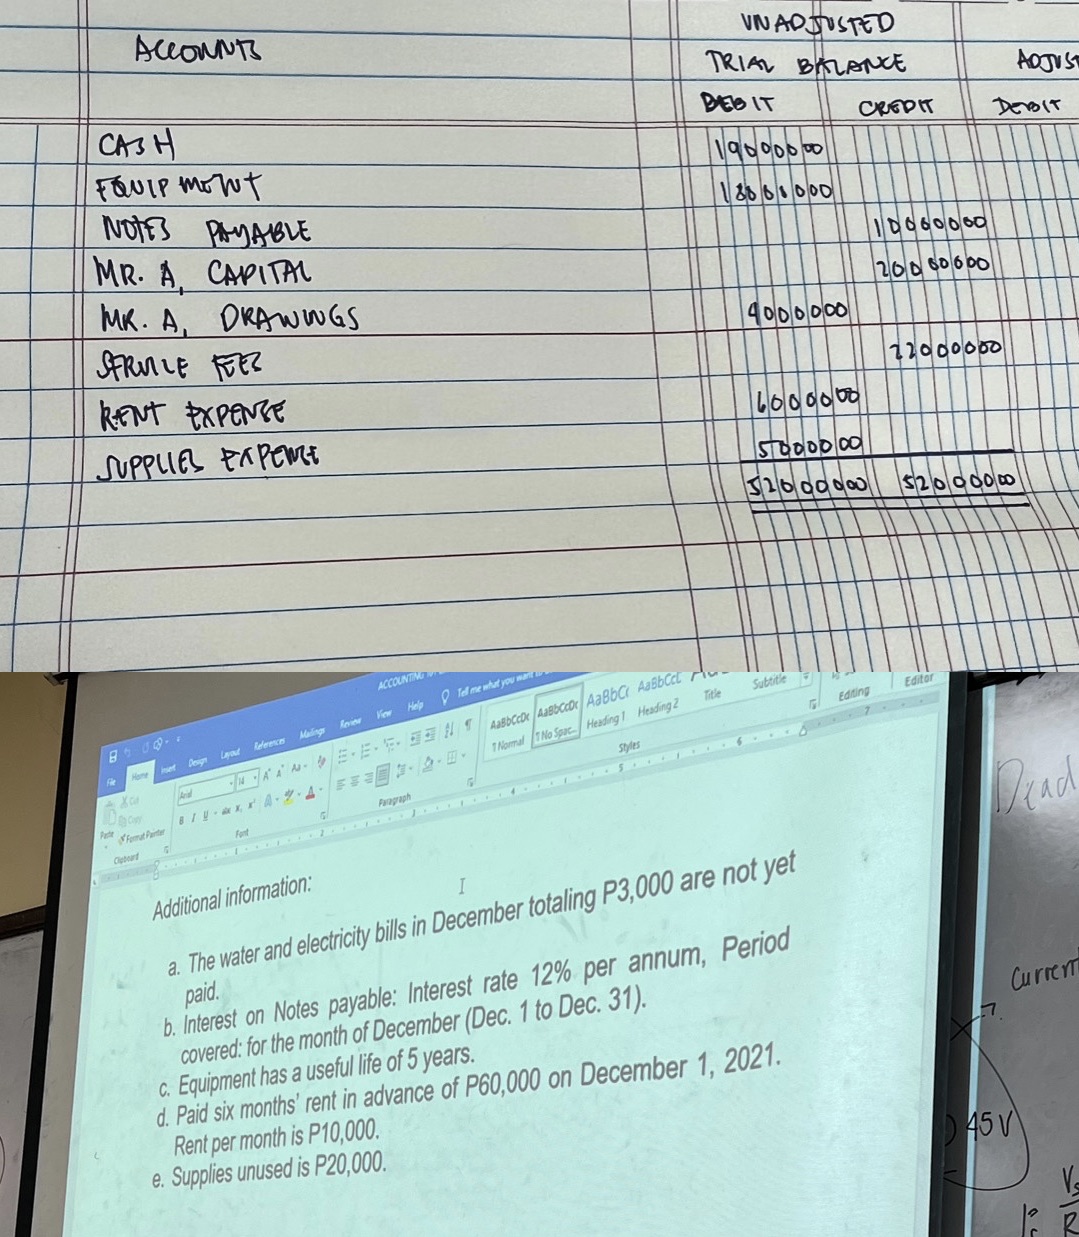 UNADJUSTED
ACCOUNTS TRIAL BALANCE ADJUST
DEBIT CREDIT DEBIT
CASH 190000 00
EQUIPMENT 180000 00
NOTES PAYABLE 100000 00
MR. A, CAPITAL 200000 00
MR. A, DRAWINGS 40000 00
SERVICE FEES 220000 00
RENT EXPENSE 60000 00
SUPPLIES EXPENSE 50000 00
520000 00 520000 00
ACCOUNTING
File Home Insert Design Layout References Mailings Review View Help Tell me what you want
Cut
Copy
Paste Format Painter
Clipboard
Arial 14
Font
Paragraph
AaBbCcDc AaBbCcDc AaBbCc AaBbCcL
¶ Normal ¶ No Spac... Heading 1 Heading 2 Title Subtitle
Styles
Editing Editor
Additional information:
a. The water and electricity bills in December totaling P3,000 are not yet
paid.
b. Interest on Notes payable: Interest rate 12% per annum, Period
covered: for the month of December (Dec. 1 to Dec. 31).
c. Equipment has a useful life of 5 years.
d. Paid six months' rent in advance of P60,000 on December 1, 2021.
Rent per month is P10,000.
e. Supplies unused is P20,000.
Dead
Current
45V
Vs
R